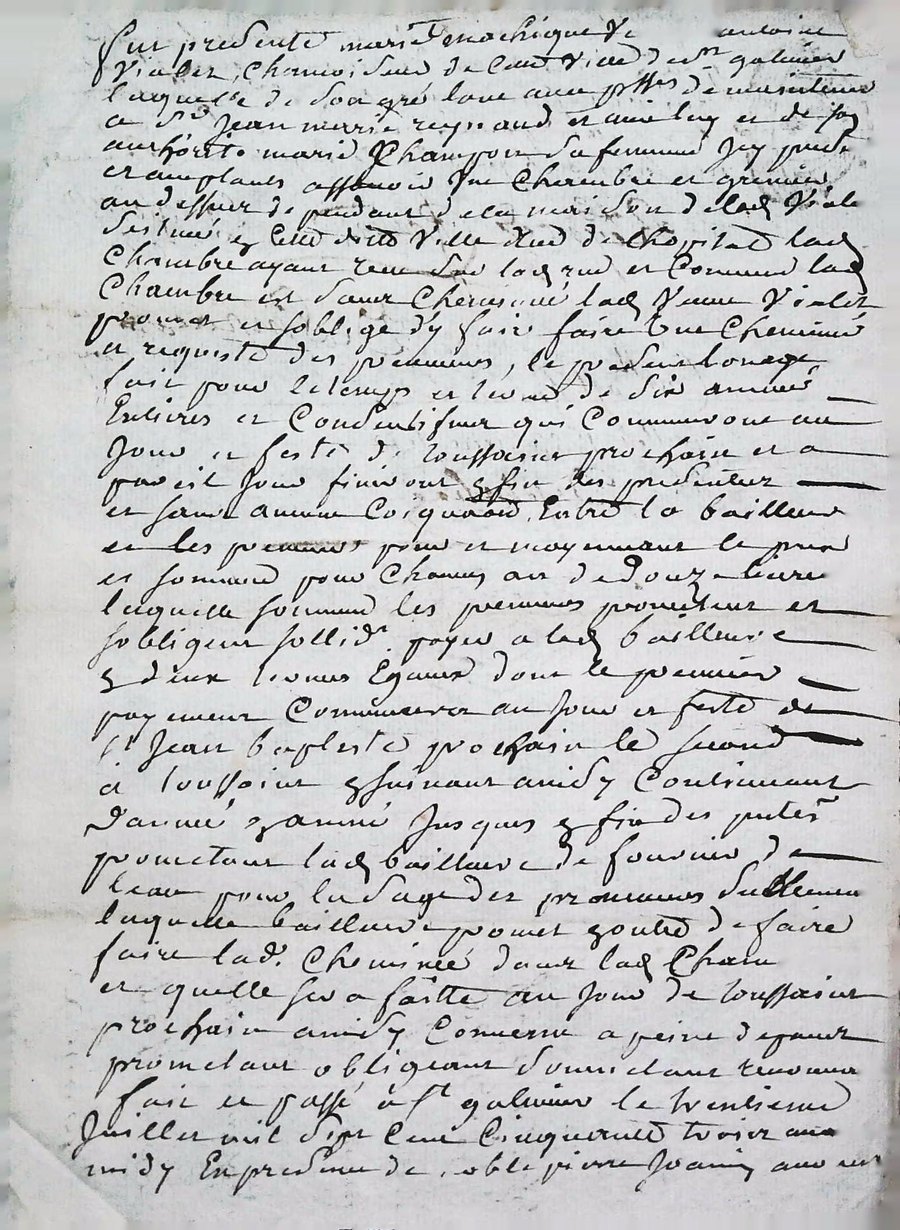 fut presente marie enachique Ve antoine
Vialet, Chamoiseur de Cette Ville de st galmier
laquelle de Son gré loue aux pntes de maintenir
a Sr Jean marie reynaud et avec luy et de Son
authorité marie Champon Sa femme Icy pnte
et aceptants assavoir Une Chambre et grenier
au dessus dependant de la maison de lad Viale
Scituée en Cette ditte Ville rue de lhopital lad
Chambre ayant veue Sur lad rue et Comme lad
Chambre est Sans Cheminée lad Veuve Vialet
promet et soblige dy faire faire Une Cheminée
et requiste des preneurs, le present louage
fait pour le temps et terme de Six années
Entieres et Consecutifves qui Commenceront au
Jour et feste de toussaint prochain et a
pareil Jour finiront en fin des presentes
et sans aucun Entre la bailleure
et les preneurs pour et moyennant le prix
et somme pour Chacun an de douze livres
laquelle somme les preneurs promettent et
sobligent sollidt payer a lad bailleure
en deux termes Egaux dont le premier
payement Commencera au Jour et feste de
st Jean baptiste prochain le second
à toussaint ensuivant ainsy Continuant
dannée en année Jusques en fin des pntes
prometant lad bailleure de fournir de
leau pour lusage des preneurs
laquelle bailleure promet en outre de faire
faire lad. Cheminée dans lad Cham
et quelle sera faitte au Jour de toussaint
prochain ainsy Convenu a peine depans
prometant obligeant Soumetant renonce
fait et passé à st galmier le trentieme
Juillet mil Sept Cent Cinquante trois avant
midy En presence de noble pierre Joanin avocat